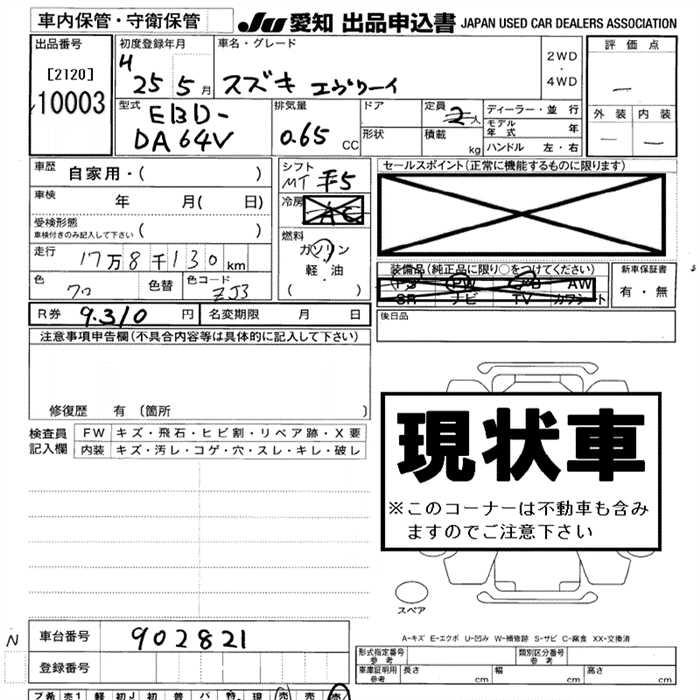 車内保管・守衛保管
JU 愛知 出品申込書 JAPAN USED CAR DEALERS ASSOCIATION
出品番号
[2120]
10003
初度登録年月
H 25 5月
車名・グレード
スズキ エヴリーイ
2WD
・
4WD
評価点
外装 内装
型式
EBD-
DA64V
排気量
0.65 CC
ドア
形状
定員 2人
積載 kg
ディーラー・並行
モデル年式 年
ハンドル 左・右
車歴 自家用・( )
車検 年 月( 日)
受検形態
車検付きのみ記入して下さい ( )
走行 17万8千130km
色 色替 色コード
ZJ3
シフト
MT 平5
冷房
AC
燃料
ガソリン
・
軽油
( )
セールスポイント(正常に機能するものに限ります)
装備品(純正品に限り○をつけてください)
PS PW AW
SR ナビ TV カワシート
新車保証書
有・無
R券 9.310円 名変期限 月 日
後日品
注意事項申告欄(不具合内容等は具体的に記入して下さい)
修復歴 有(箇所 )
検査員
記入欄
FW キズ・飛石・ヒビ割・リペア跡・X要
内装 キズ・汚レ・コゲ・穴・スレ・キレ・破レ
現状車
※このコーナーは不動車も含み
ますのでご注意下さい
スペア
A-キズ E-エクボ U-凹み W-補修跡 S-サビ C-腐食 XX-交換済
N
車台番号 902821
登録番号
形式指定番号
参考
類別区分番号
参考
車庫証明用
参考
長さ cm 幅 cm 高さ cm